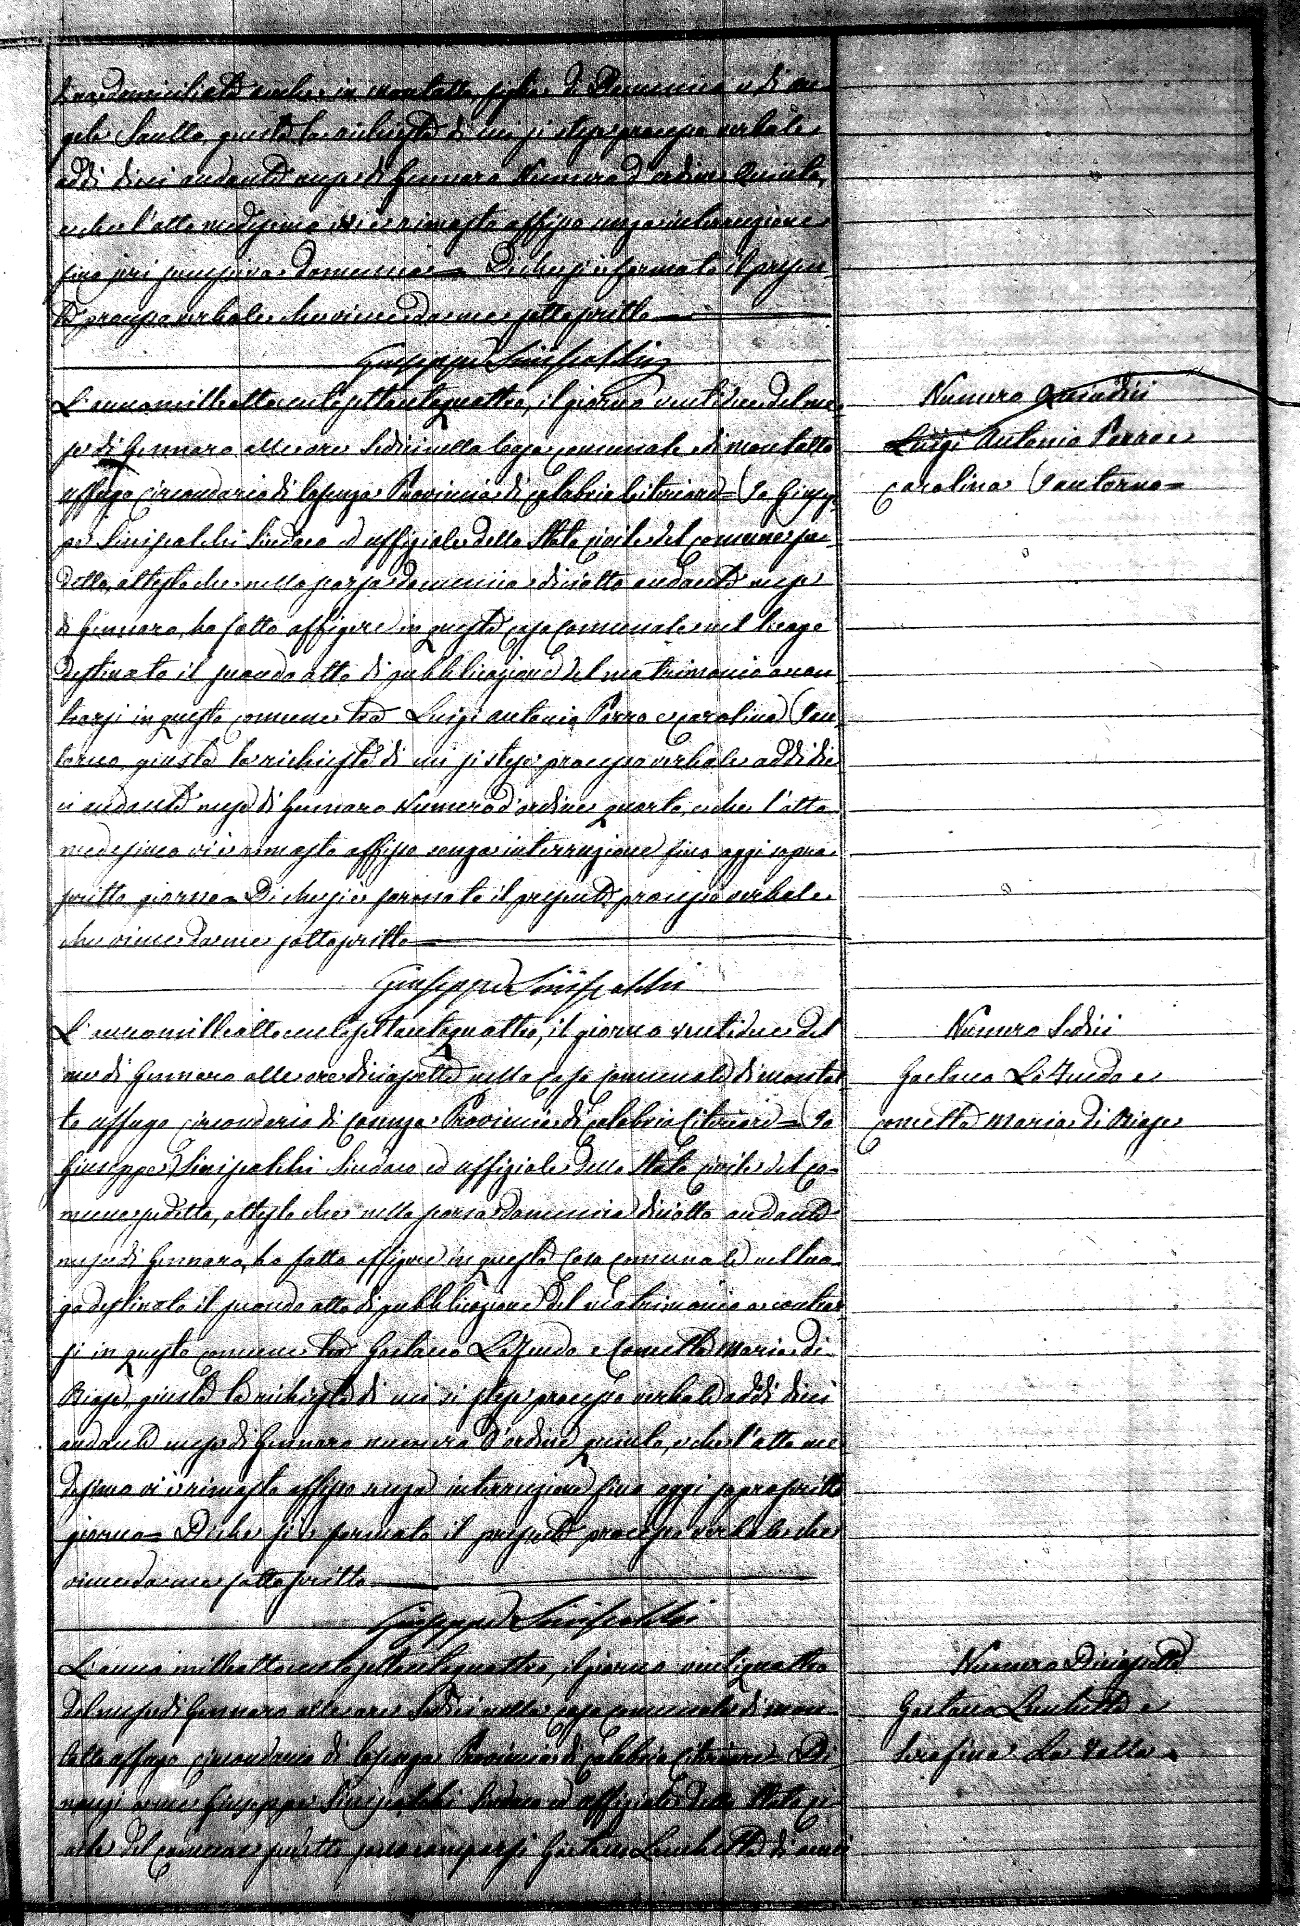 domiciliata anche in Montalto, figlia di Domenico e di An-
gela Saullo, giusta la richiesta di cui si stese processo verbale
addi dieci andante mese di Gennaro Numero d'ordine Quinto,
e che l'atto medesimo vi è rimasto affisso senza interruzione
fino jeri Domenica = Di che si è formato il presen-
te processo verbale che viene da me sottoscritto
Giuseppe Sinipalchi
L'anno milleottocentosettantaquattro, il giorno ventidue del me-
se di Gennaro alle ore sedici nella Casa Comunale di Montalto
Uffugo Circondario di Cosenza Provincia di Calabria Citeriore = Io Giusep-
pe Sinipalchi Sindaco ed uffiziale dello Stato Civile del Comune su-
detto, attesto che nella scorsa Domenica diciotto andante mese
di Gennaro, ho fatto affigere in questa Casa Comunale nel luogo
destinato il secondo atto di pubblicazione del matrimonio a con-
trarsi in questo Comune tra Luigi Antonio Perro e Carolina San-
torno, giusta la richiesta di cui si stese processo verbale addi die-
ci andante mese di Gennaro Numero d'ordine quarto, e che l'atto
medesimo vi è rimasto affisso senza interruzione fino oggi sopra-
scritto giorno = Di che si è formato il presente processo verbale
che viene da me sottoscritto
Giuseppe Sinipalchi
L'anno milleottocentosettantaquattro, il giorno ventidue del
mese di Gennaro alle ore diciassette nella Casa Comunale di Montal-
to Uffugo Circondario di Cosenza Provincia di Calabria Citeriore = Io
Giuseppe Sinipalchi Sindaco ed uffiziale dello Stato Civile del Co-
mune sudetto, attesto che nella scorsa Domenica diciotto andante
mese di Gennaro, ho fatto affigere in questa Casa Comunale nel luo-
go destinato il secondo atto di pubblicazione del matrimonio a contrar-
si in questo Comune tra Gaetano Lo Feudo e Concetta Maria di
Biase, giusta la richiesta di cui si stese processo verbale addi dieci
andante mese di Gennaro numero d'ordine quinto, e che l'atto me-
desimo vi è rimasto affisso senza interruzione fino oggi soprascritto
giorno = Di che si è formato il presente processo verbale che
viene da me sottoscritto
Giuseppe Sinipalchi
L'anno milleottocentosettantaquattro, il giorno ventiquattro
del mese di Gennaro alle ore sedici nella Casa Comunale di Mon-
talto Uffugo Circondario di Cosenza Provincia di Calabria Citeriore = Di-
nanzi a me Giuseppe Sinipalchi Sindaco ed uffiziale dello Stato Ci-
vile del Comune sudetto sono comparsi Gaetano Lanchetta di anni
Numero Quindici
Luigi Antonio Perro e
Carolina Santorno =
Numero Sedici
Gaetano Lo Feudo e
Concetta Maria di Biase
Numero Diciassette
Gaetano Lanchetta e
Serafina La Valle =